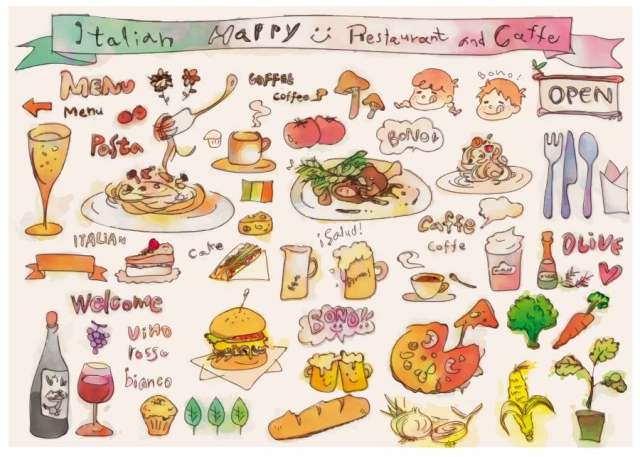 Italian Happy Restaurant and Caffe
MENU
Menu
COFFEE
coffee
Bono!
OPEN
Pasta
BONO!
ITALIAN
Cake
¡Salud!
Caffe
Caffe
OLIVE
Welcome
Vino
rosso
bianco
BONO!